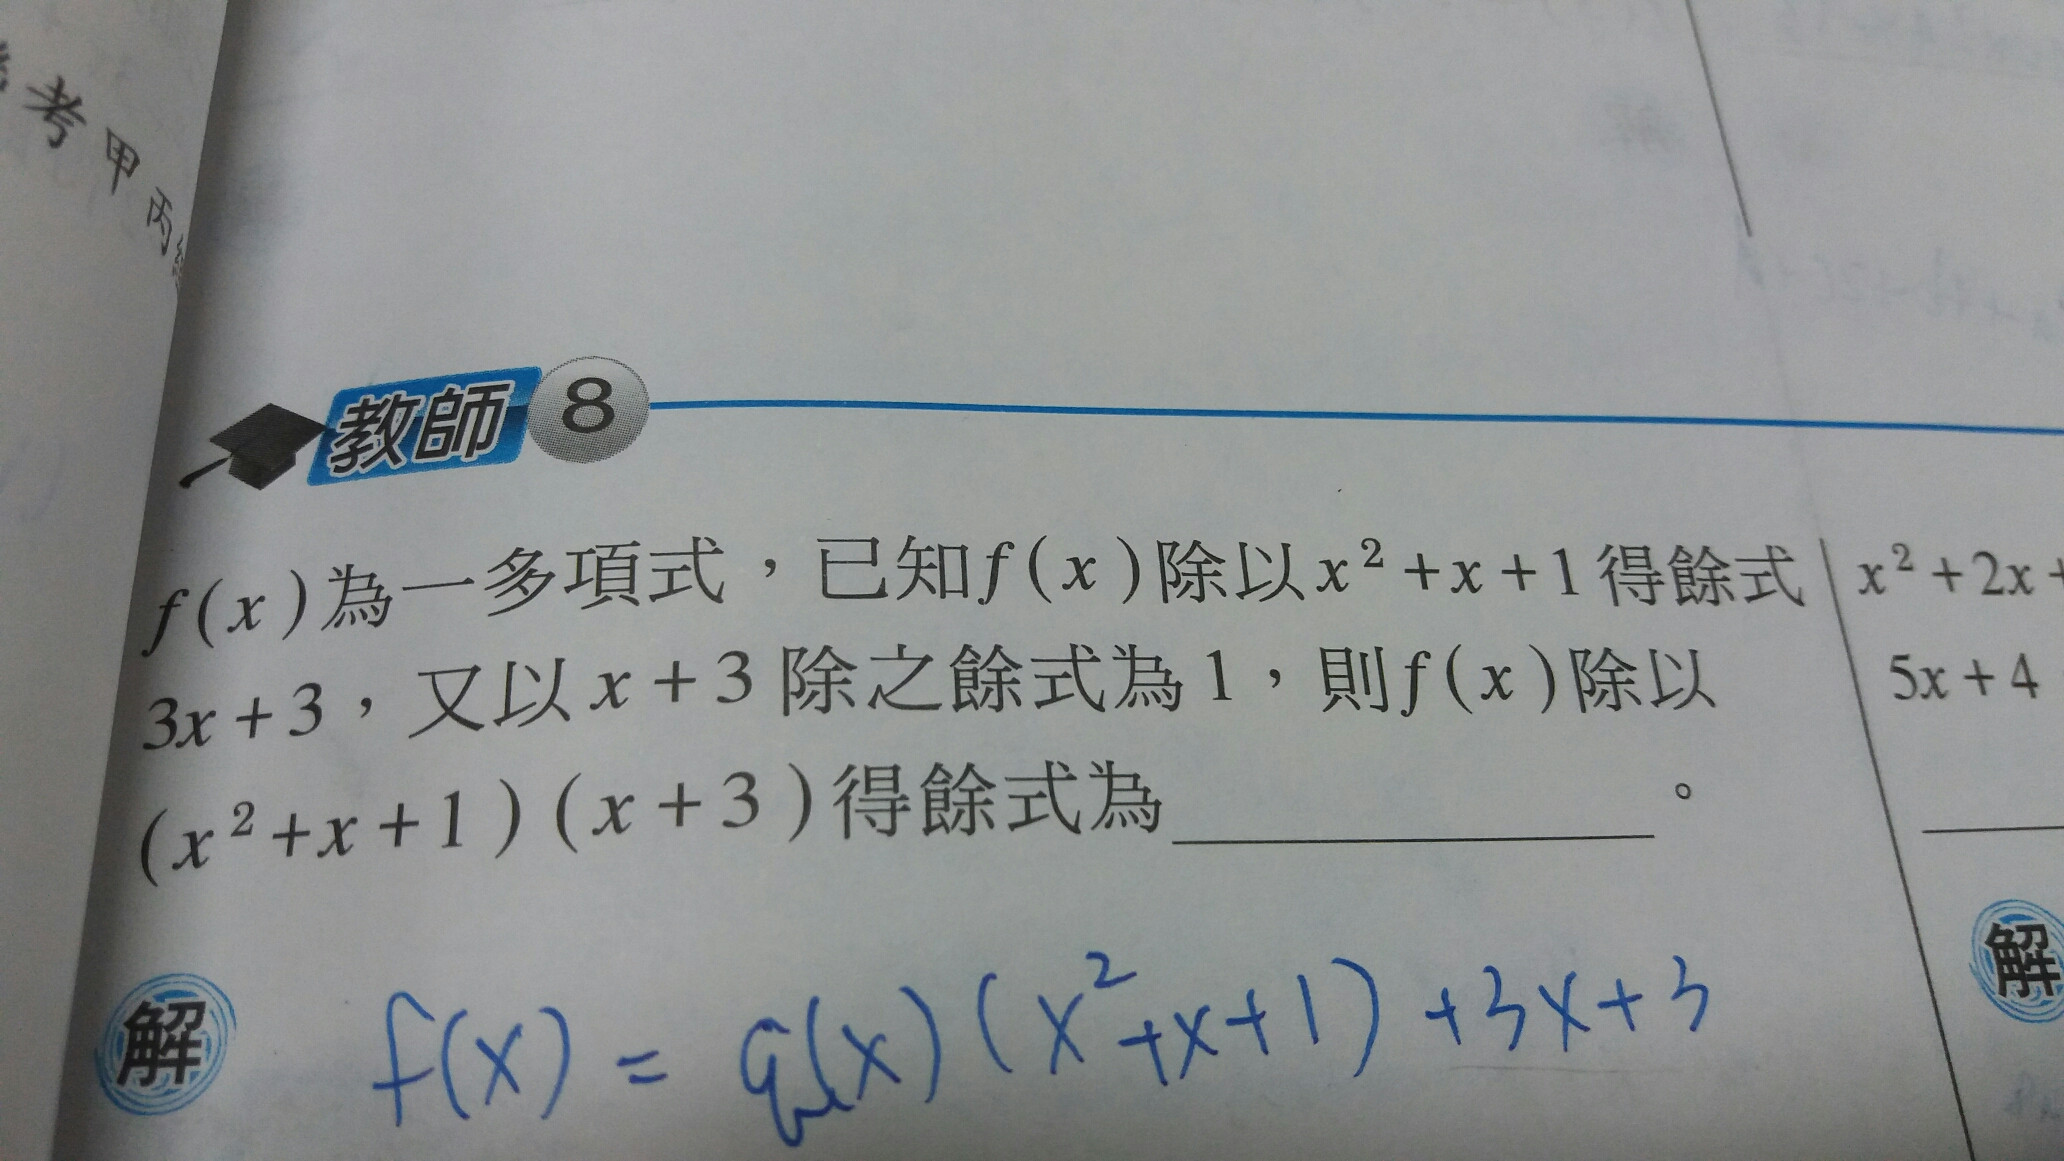 考甲丙
教師 8
f(x)為一多項式，已知f(x)除以x²+x+1得餘式
3x+3，又以x+3除之餘式為1，則f(x)除以
(x²+x+1)(x+3)得餘式為＿＿＿＿＿＿。
解
f(x) = q(x)(x²+x+1)+3x+3
x²+2x+
5x+4
解